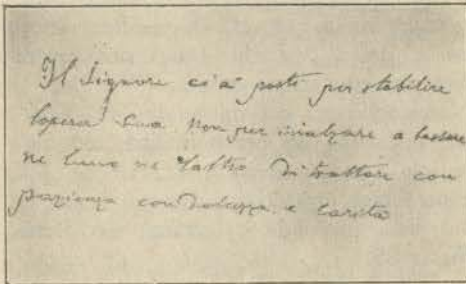 Il Signore ci à posti per stabilire
lopera Sua non per inalzare a bassare
ne luno ne laltro di trattare con
pazienza con dolcezza e carità